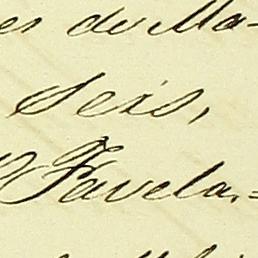 es de Ma-
Seis,
Favela,=